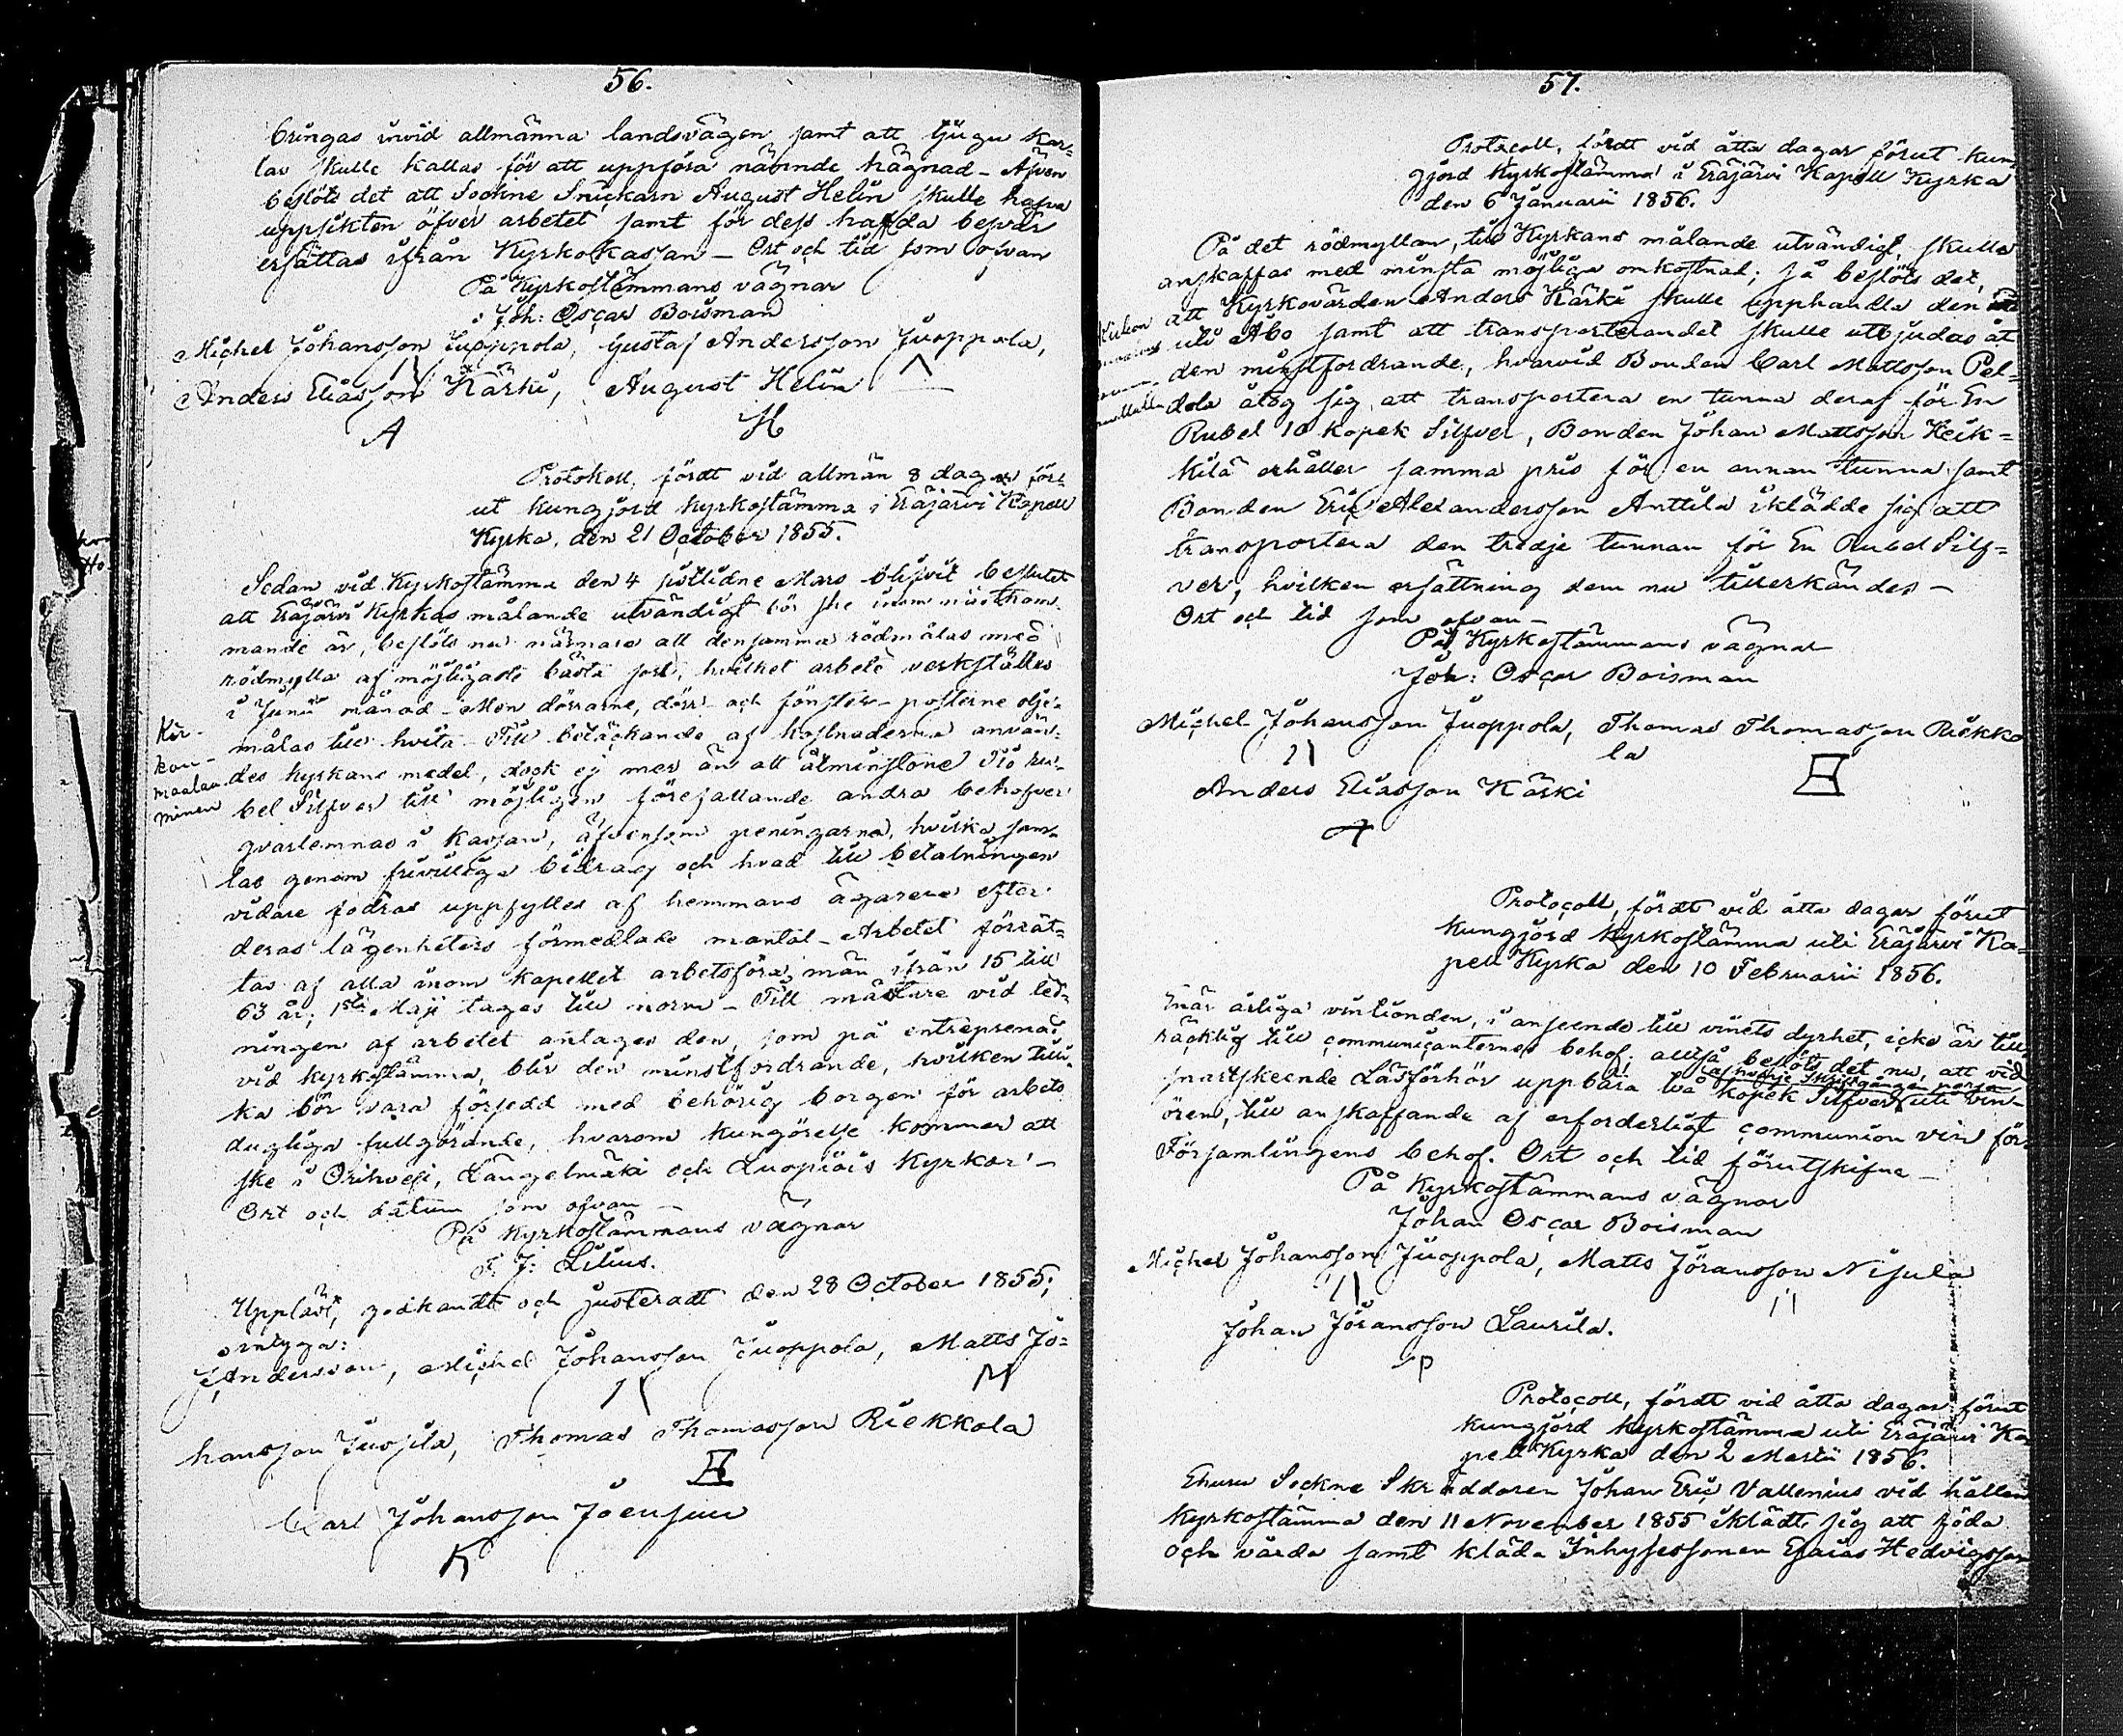 56.
bringas invid allmänna landsvägen samt att tjugu kar-
lar skulle kallas för att uppföra nämnde hägnad - Äfven
beslöts det att Sockne Snickarn August Helin skulle hafva
uppsikten öfver arbetet samt för dess hafda besvär
ersättas ifrån Kyrkokassan - Ort och tid som ofvan
På Kyrkostämmans vägnar
Joh: Oscar Boisman
Michel Johansson Juoppola, Gustaf Andersson Juoppola,
Anders Eliasson Kärki, August Helin
A H
Protokoll, fördt vid allmän 8 dagar för-
ut kungjord kyrkostämma i Eräjärvi Kapell
Kyrka, den 21 October 1855.
Sedan vid Kyrkostämma den 4 sistlidne Mars blifvit beslutet
att Eräjärvi Kyrkas målande utvändigt bör ske inom nästkom-
mande år, beslöts nu närmare att densamma rödmålas med
rödmylla af möjligaste bästa sort, hvilket arbete verkställes
i Junii månad - Men dörrarne, dörr- och fönster-posterne olje-
målas till hvita - Till betäckande af kostnaderna använ-
des kyrkans medel, dock ej mer än att åtminstone Tio ru-
bel Silfver till möjligen förefallande andra behofver
qvarlemnas i kassan, äfvensom penningarna, hvilka sam-
las genom frivilliga bidrag och hvad till betalningen
vidare fodras uppfylles af hemmans ägarene efter
deras lägenheters förmedlade mantal - Arbetet förrät-
tas af alla inom kapellet arbetsföra män ifrån 15 till
63 år; 1sta Maji tages till norm - Till mästare vid led-
ningen af arbetet antages den, som på entreprenad
vid kyrkostämma, blir den minstfordrande, hvilken tilli-
ka bör vara försedd med behörig borgen för arbets
dugliga fullgörande, hvarom kungörelse kommer att
ske i Orihvesi, Längelmäki och Luopiois Kyrkor -
Ort och datum som ofvan -
På Kyrkostämmans vägnar
F. J: Lilius.
Uppläst, godkandt och justeradt den 28 October 1855;
intyga:
J Andersson, Michel Johansson Juoppola, Matts Jo-
hansson Juosila, Thomas Thomasson Riekkola
Carl Johansson Joensuu
K
Kir-
kon-
maalaa
minen
57.
Protocoll, fördt vid åtta dagar förut kun-
gjord Kyrkostämma i Eräjärvi Kapell Kyrka
den 6 Januarii 1856.
På det rödmyllan, till Kyrkans målande utvändigt, skulle
anskaffas med minsta möjliga omkostnad; så beslöts det,
att Kyrkovärden Anders Kärki skulle upphandla den
uti Åbo samt att transporterandet skulle utbjudas åt
den minstfordrande, hvarvid Bonden Carl Mattsson Pel-
dola åtog sig att transportera en tunna deraf för En
Rubel 10 kopek Silfver, Bonden Johan Mattsson Heik-
kilä erhåller samma pris för en annan tunna samt
Bonden Eric Alexandersson Anttila iklädde sig att
transportera den tredje tunnan för En Rubel Silf-
ver, hvilken ersättning dem nu tillerkändes -
Ort och tid som ofvan -
På Kyrkostämmans vägnar
Joh: Oscar Boisman
Michel Johansson Juoppola, Thomas Thomasson Riekko
la
Anders Eliasson Kärki
A
Protocoll, fördt vid åtta dagar förut
kungjord kyrkostämma uti Eräjärvi Ka-
pell Kyrka den 10 Februarii 1856.
Enär årliga vintionden, i anseende till vinets dyrhet, icke är till-
räcklig till communicanternes behof; alltså beslöts det nu, att vid
af hvarje Skriftgången person
snartskeende Läsförhör uppbära två kopek Silfver uti vin-
ören, till anskaffande af erforderligt communion vin för
Församlingens behof. Ort och tid förutskifne -
På Kyrkostämmans vägnar
Johan Oscar Boisman
Michel Johansson Juoppola, Matts Jöransson Nisula
Johan Jöransson Laurila.
Protocoll, fördt vid åtta dagar förut
kungjord kyrkostämma uti Eräjärvi Ka-
pell Kyrka den 2 Martii 1856.
Ehuru Sockne Skräddaren Johan Eric Vallenius vid hållen
Kyrkostämma den 11 November 1855 iklädt sig att föda
och vårda samt kläda Inhysessonen Esaias Hedvigsson